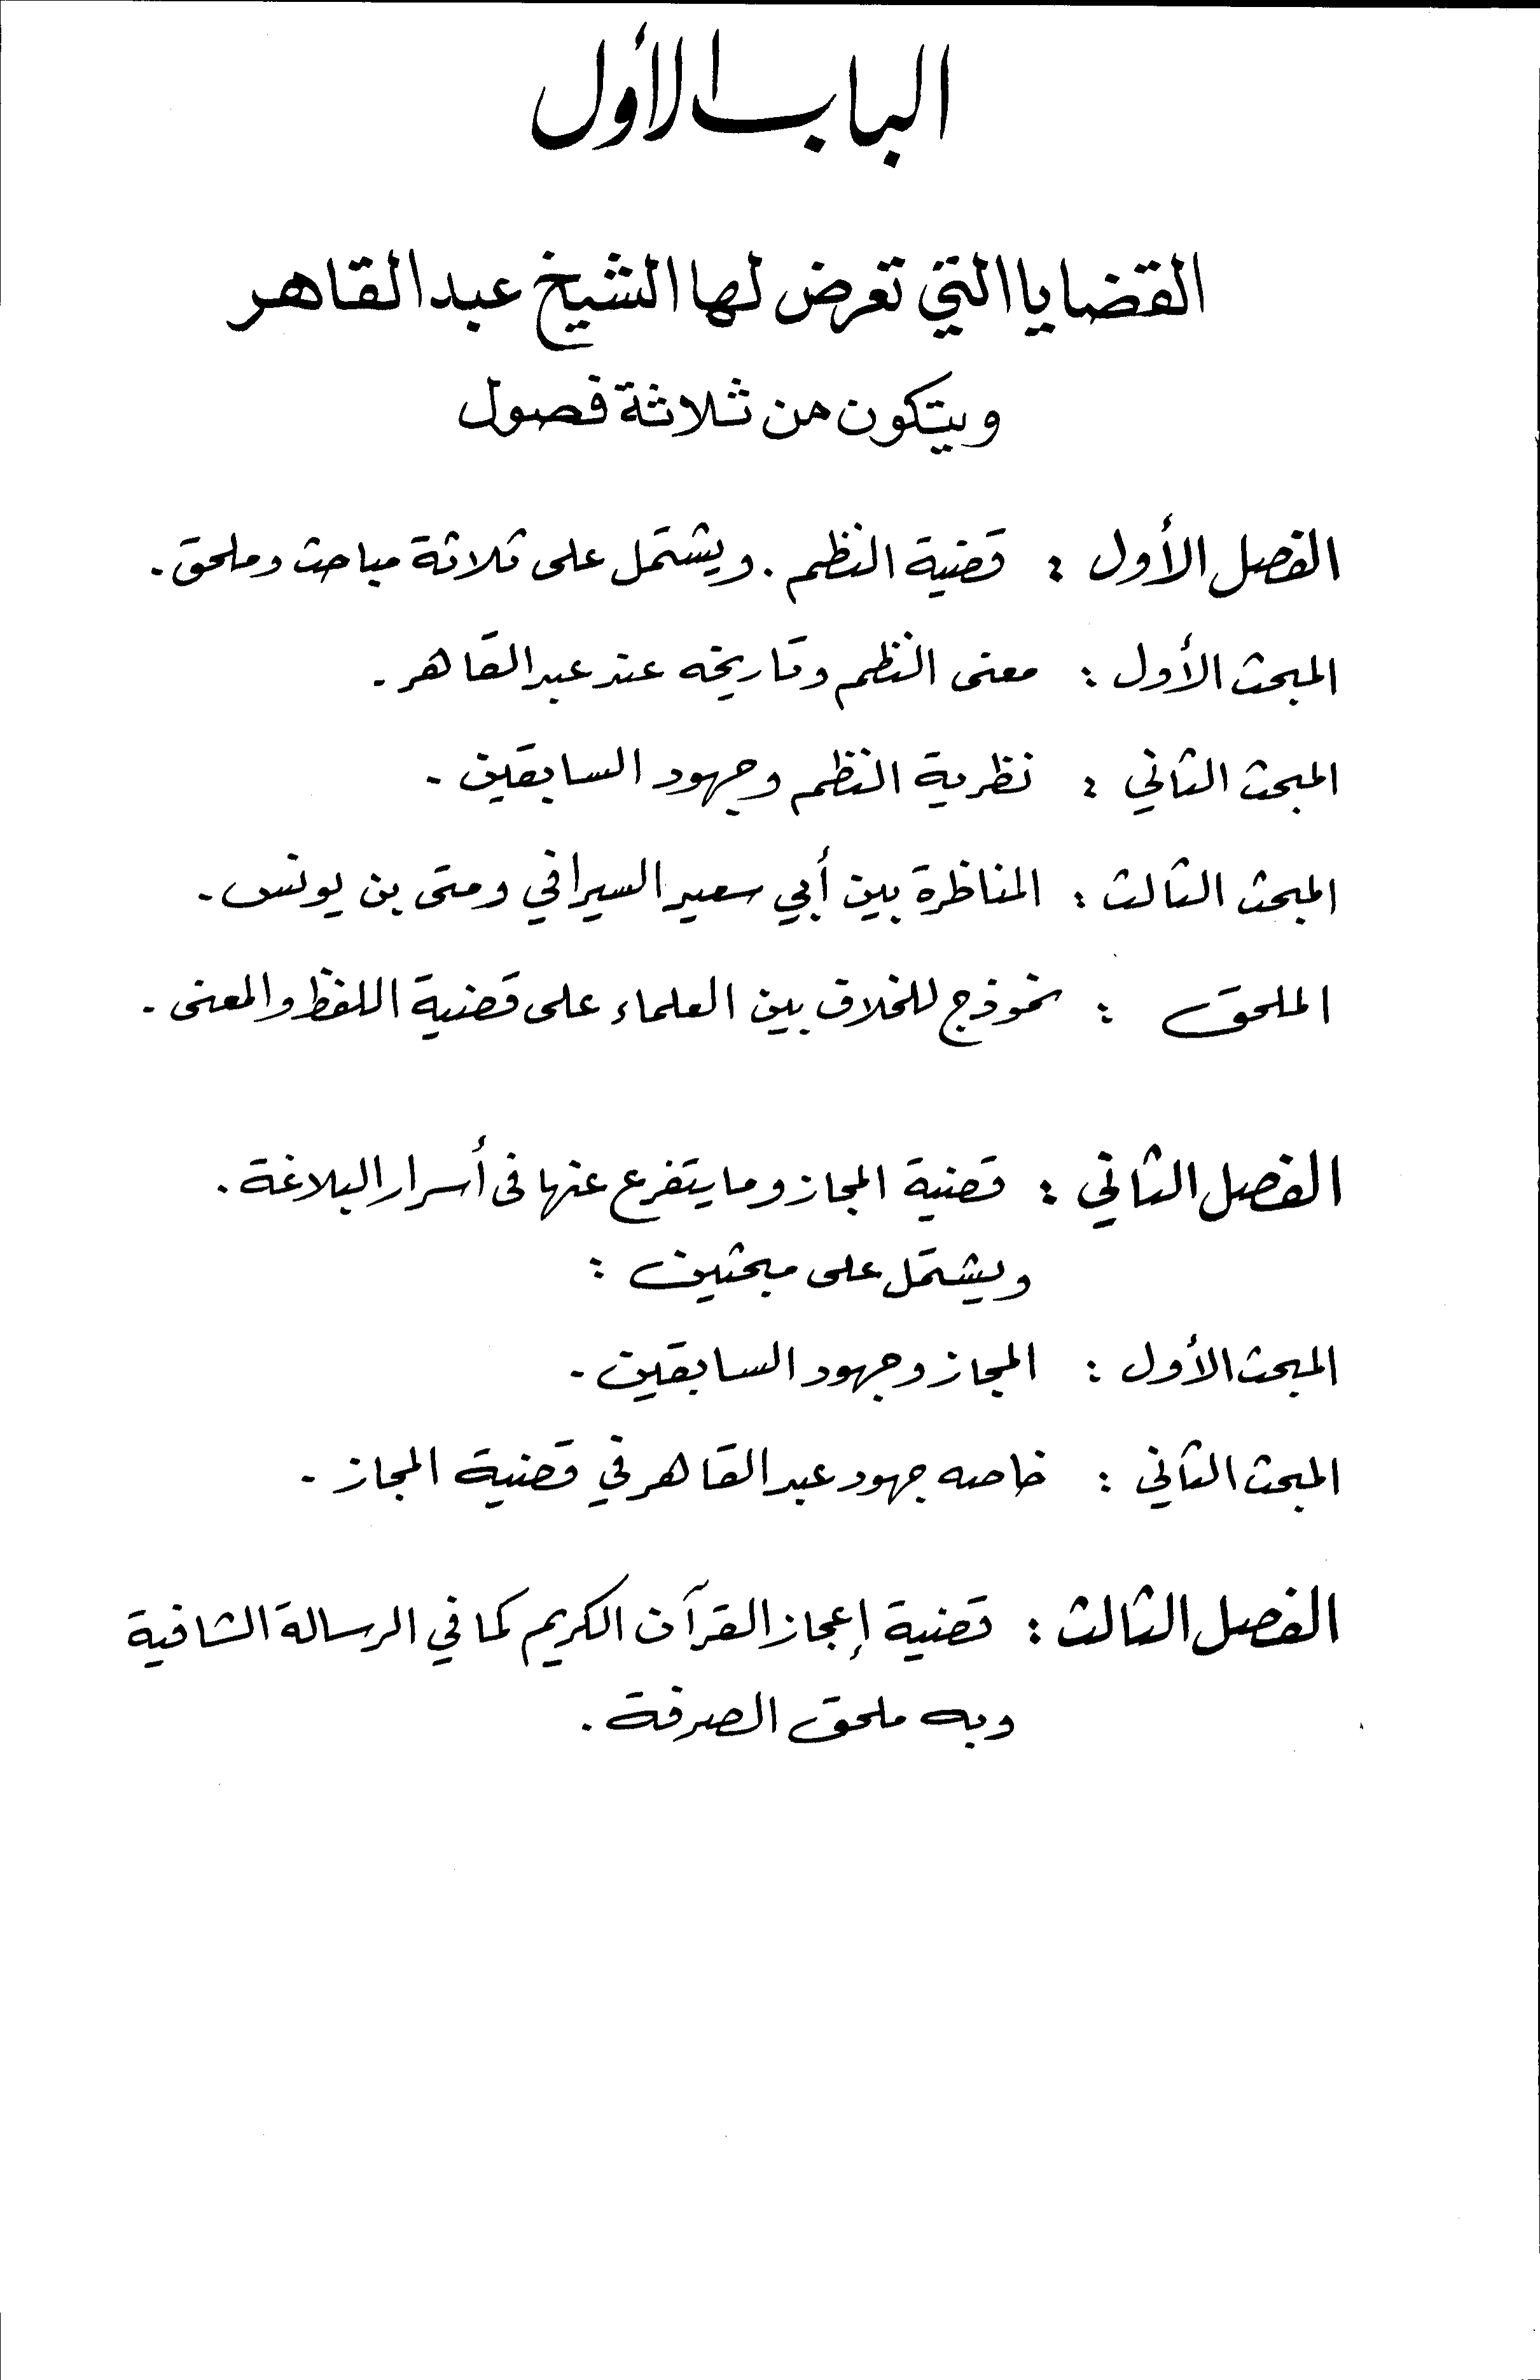 الباب الأول
القضايا التي تعرض لها الشيخ عبد القاهر
ويتكون من ثلاثة فصول
الفصل الأول : قضية النظم . ويشتمل على ثلاثة مباحث وملحق .
المبحث الأول : معنى النظم وتاريخه عند عبد القاهر .
المبحث الثاني : نظرية النظم وجهود السابقين .
المبحث الثالث : المناظرة بين أبي سعيد السيرافي ومتى بن يونس .
الملحق : نموذج للخلاف بين العلماء على قضية اللفظ والمعنى .
الفصل الثاني : قضية المجاز وما يتفرع عنها فى أسرار البلاغة .
ويشتمل على مبحثين :
المبحث الأول : المجاز وجهود السابقين .
المبحث الثاني : خاصه جهود عبد القاهر في قضية المجاز .
الفصل الثالث : قضية إعجاز القرآن الكريم كما في الرسالة الشافية
وبه ملحق الصرفة .